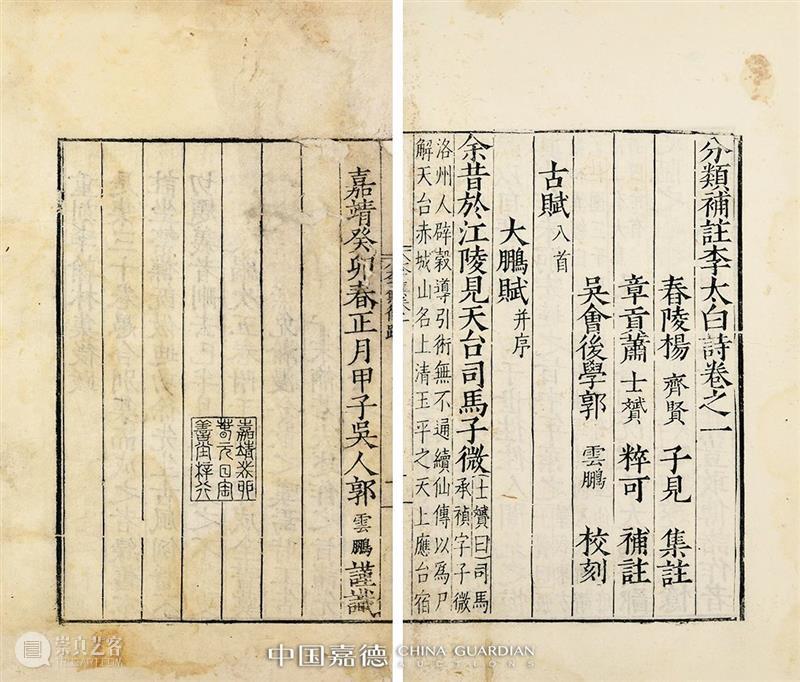 分類補註李太白詩卷之一
舂陵楊 齊賢 子見 集註
章貢蕭 士贇 粹可 補註
吳會後學郭 雲鵬 校刻
古賦 八首
大鵬賦 并序
余昔於江陵見天台司馬子微 士贇曰司馬
承禎字子微
洛州人辟穀導引術無不通續仙傳以為尸
解天台赤城山名上清玉平之天上應台宿
嘉靖癸卯春正月甲子吳人郭 雲鵬 謹識
嘉靖癸卯
春元日宝
善堂梓行
中国嘉德 CHINA GUARDIAN
AUCTIONS
崇真艺客